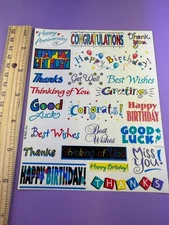 Happy
Anniversary
CONGRATULATIONS
Thank
you
HAPPY
BIRTHDAY
Thanks
Get Well
Best Wishes
Thinking of You
Greetings
Good
Luck
Congrats!
Happy
BIRTHDAY
Best Wishes
Best
Wishes
GOOD
LUCK!
Thanks
Thinking of You
Miss
You!
HAPPY BIRTHDAY!
Happy Birthday!
THANKS